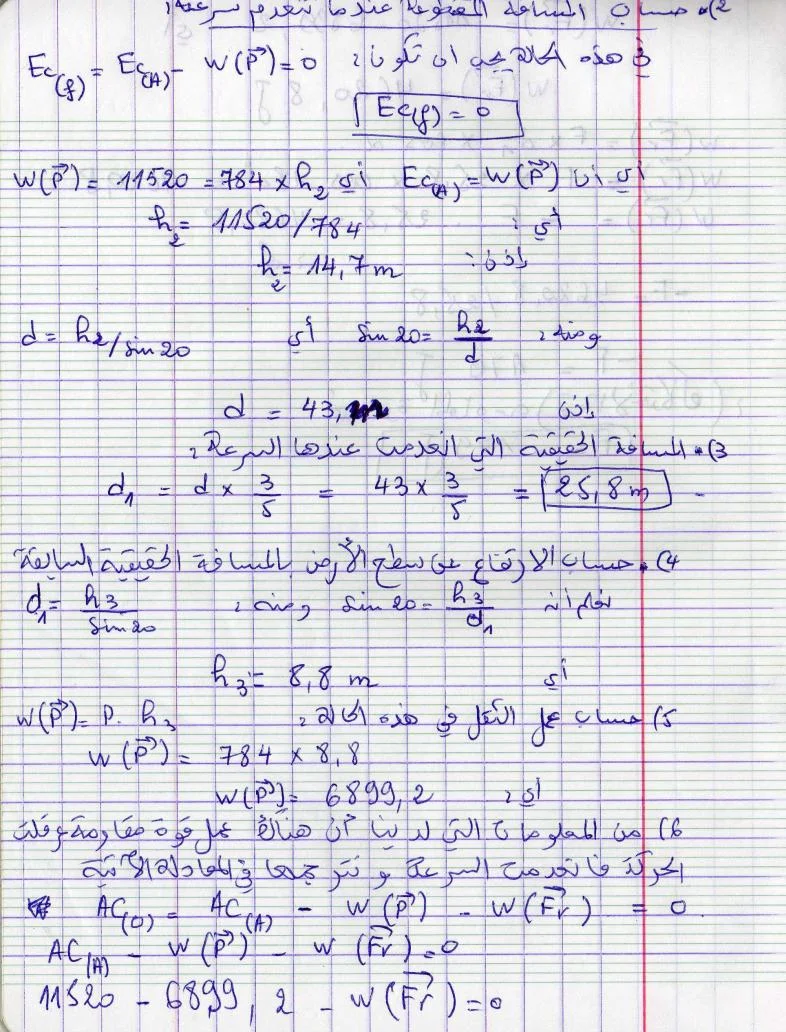 2). حساب المسافة المقطوعة عندما تنعدم سرعته:
في هذه الحالة يجب ان تكون: Ec(f) = Ec(A) - W(P) = 0
Ec(f) = 0
أي أن Ec(A) = W(P) أي W(P) = 11520 = 784 × h2
أي: h2 = 11520/784
إذن: h2 = 14,7 m
ومنه: sin 20 = h2/d أي d = h2/sin 20
إذن d = 43, m
3). المسافة الحقيقية التي انعدمت عندها السرعة:
d1 = d × 3/5 = 43 × 3/5 = 25,8 m
4). حساب الارتفاع عن سطح الأرض بالمسافة الحقيقية السابقة
نعلم أنه sin 20 = h3/d1 ومنه: d1 = h3/sin 20
أي h3 = 8,8 m
5) حساب عمل الثقل في هذه الحالة: W(P) = P. h3
W(P) = 784 × 8,8
أي: W(P) = 6899,2
6) من المعلومات التي لدينا أن هناك عمل قوة مقاومة عرقلت
الحركة فانعدمت السرعة ونترجمها في المعادلة الآتية
AC(0) = AC(A) - W(P) - W(Fr) = 0
AC(A) - W(P) - W(Fr) = 0
11520 - 6899,2 - W(Fr) = 0